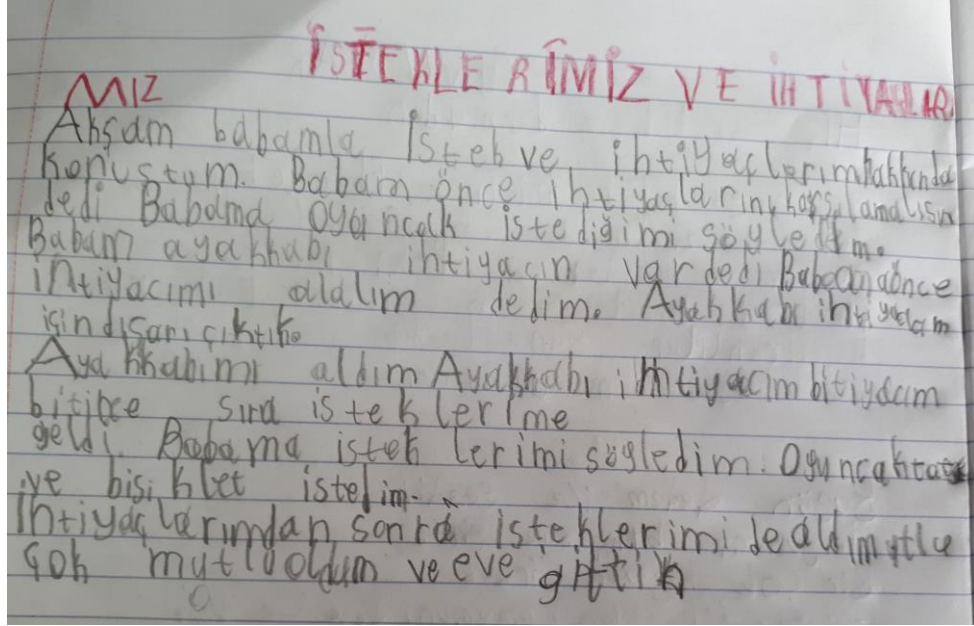 İSTEKLERİMİZ VE İHTİYAÇLAR
MIZ
Akşam babamla İstek ve ihtiyaçlerımhakkında
konuştum. Babam önce ihtiyaçlarını karşılamalısın
dedi Babama oyuncak istediğimi söyledim.
Babam ayakkabı ihtiyacın var dedi Babamaönce
ihtiyacımı alalım dedim. Ayakkabı
için dışarı çıktık.
Ayakkabımı aldım Ayakkabı ihtiyacım
bitince sıra isteklerime
geldi. Babama isteklerimi söyledim. Oyuncak
ve bisiklet istedim.
İhtiyaçlarımdan sonra isteklerimi de aldım
çok mutluoldum ve eve gittik